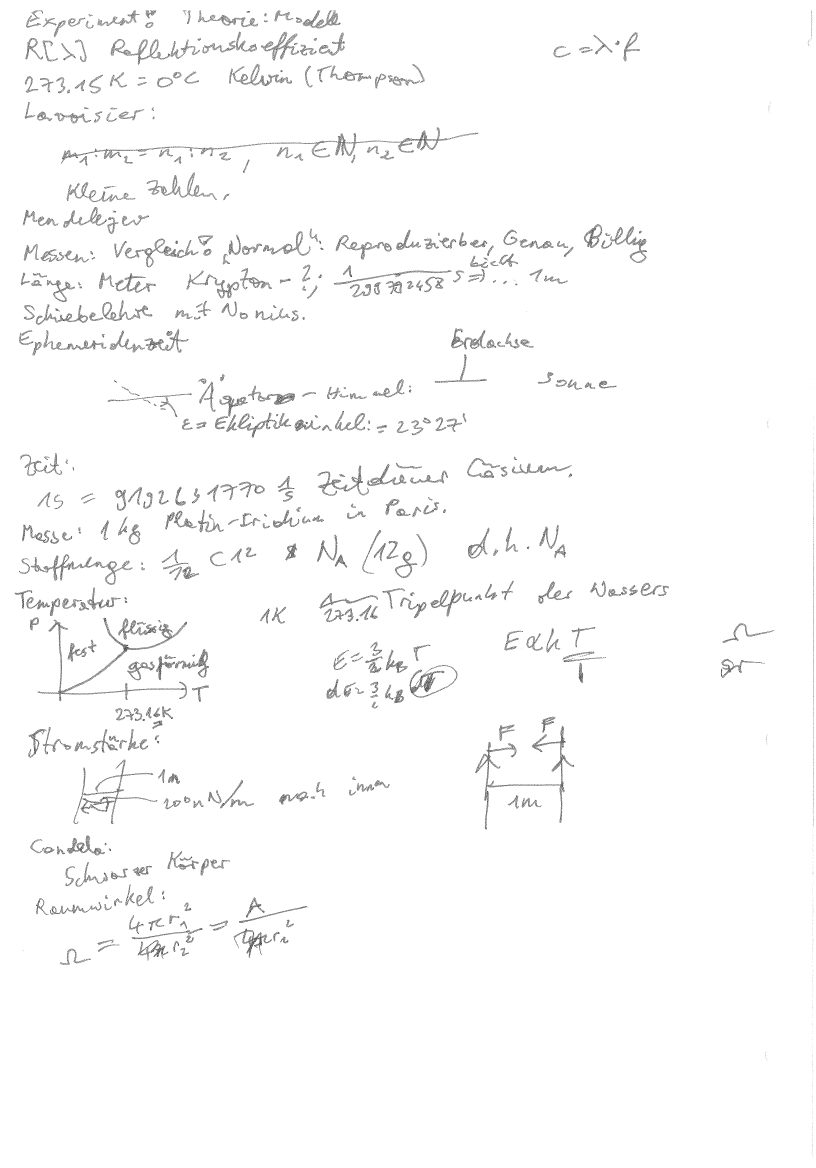 Experiment! Theorie: Modell
R[λ] Reflektionskoeffizient c = λ·f
273.15K = 0°C Kelvin (Thompson)
Lavoisier:
m₁:m₂ = n₁:n₂, n₁ ∈ ℕ, n₂ ∈ ℕ
Kleine Zahlen.
Mendelejev
Messen: Vergleich! „Normal“: Reproduzierbar, Genau, Billig
Länge: Meter Krypton-?; 1/298792458 s ⇒ ... 1m
Schiebelehre mit Nonius.
Ephemeridenzeit Erdachse
Äquator - Himmel: Sonne
ε = Ekliptikwinkel: = 23°27'
Zeit:
1s = 9192631770 1/s Zeitdauer Cäsium.
Masse: 1kg Platin-Iridium in Paris.
Stoffmenge: 1/12 C12 N_A (12g) d.h. N_A
Temperatur: 1K 1/273.16 Tripelpunkt des Wassers
P flüssig
fest
gasförmig
T
273.16K
E = 3/2 k_B T
E ∝ k T
Ω
Stromstärke:
1m
200nN/m nach innen
F F
1m
Candela:
Schwarzer Körper
Raumwinkel:
Ω = 4πr₁²/r₂² = A/r₂²